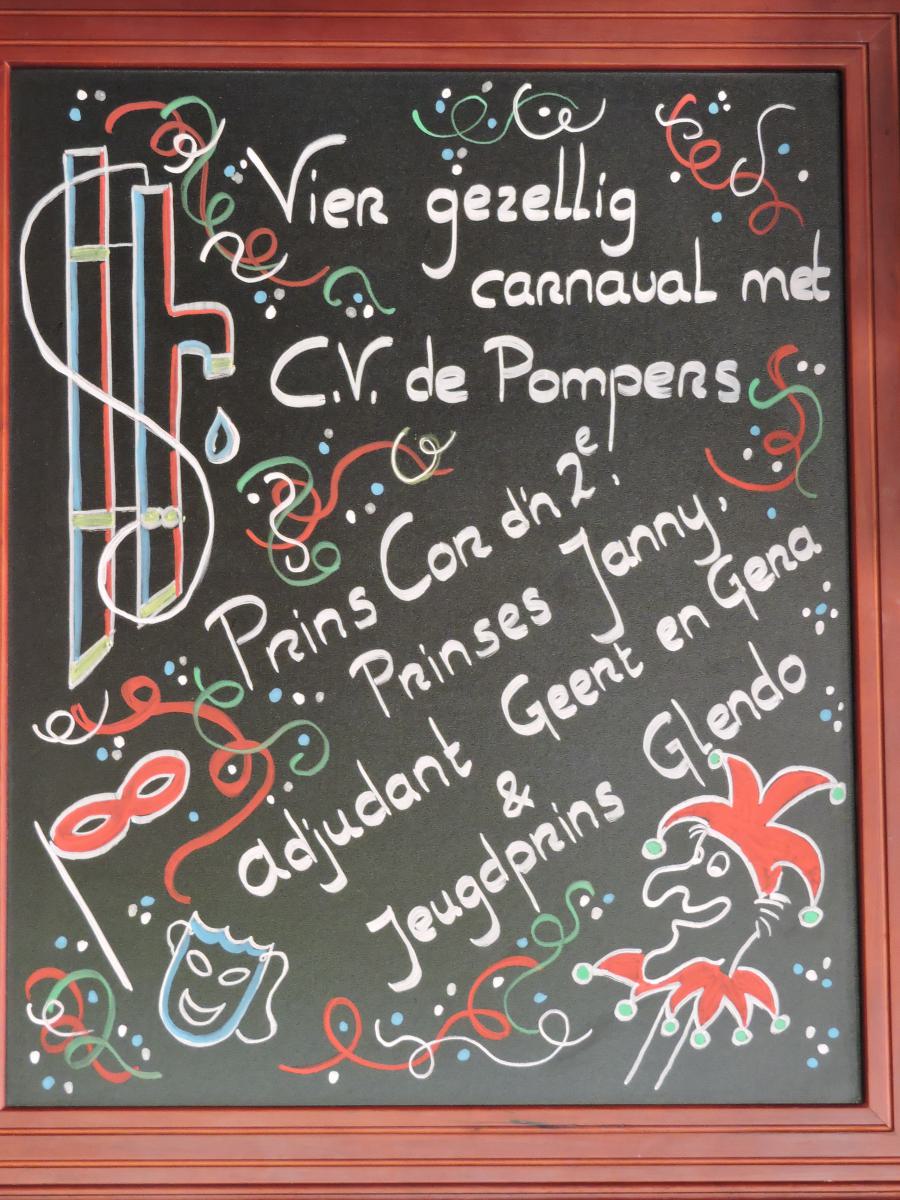 Vier gezellig
carnaval met
C.V. de Pompers
Prins Cor d'n 2e!
Prinses Janny,
adjudant Geert en Gera
&
Jeugdprins Glendo